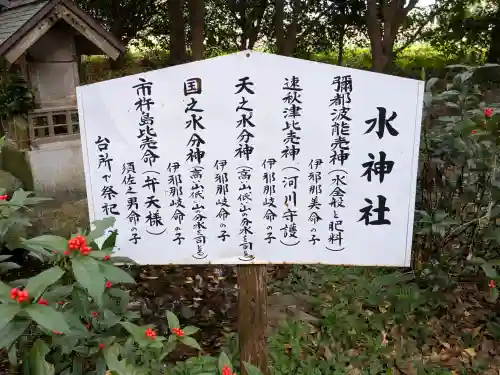 水神社
彌都波能売神(水全般と肥料)
伊邪那美命の子
速秋津比売神(河川守護)
伊邪那岐命の子
天之水分神
伊邪那岐命の子
国之水分神(高山低山の分水を司る)
伊邪那岐命の子
市杵島比売命(弁天様)
須佐之男命の子
台所で祭祀